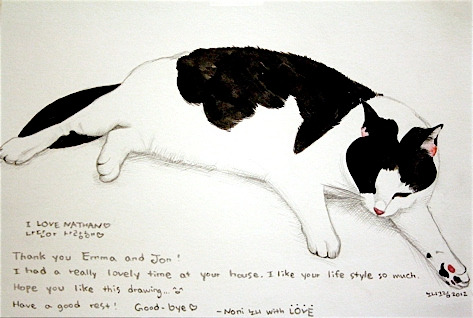 I LOVE NATHAN♡
나단아 사랑해♡
Thank you Emma and Jon!
I had a really lovely time at your house. I like your life style so much.
Hope you like this drawing...
Have a good rest! Good-bye♡ -Noni 노니 with LOVE
2012